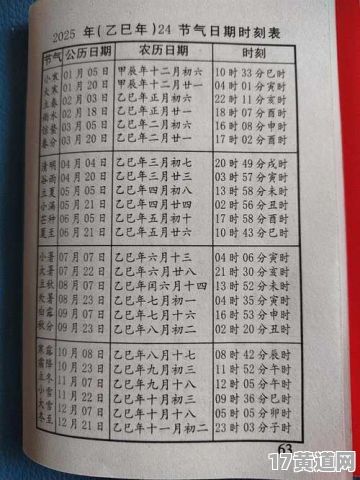 2025 年(乙巳年)24 节气日期时刻表
节气 公历日期 农历日期 时刻
小寒 01 月 05 日 甲辰年十二月初六 10 时 33 分巳时
大寒 01 月 20 日 甲辰年十二月廿一 04 时 01 分寅时
立春 02 月 03 日 乙巳年正月初六 22 时 11 分亥时
雨水 02 月 18 日 乙巳年正月廿一 18 时 07 分酉时
惊蛰 03 月 05 日 乙巳年二月初六 16 时 08 分申时
春分 03 月 20 日 乙巳年二月廿一 17 时 02 分酉时
清明 04 月 04 日 乙巳年三月初七 20 时 49 分戌时
谷雨 04 月 20 日 乙巳年三月廿三 04 时 57 分寅时
立夏 05 月 05 日 乙巳年四月初八 13 时 58 分未时
小满 05 月 21 日 乙巳年四月廿四 02 时 56 分丑时
芒种 06 月 05 日 乙巳年五月初十 17 时 58 分酉时
夏至 06 月 21 日 乙巳年五月 10 时 43 分巳时
小暑 07 月 07 日 乙巳年六月十三 04 时 06 分寅时
大暑 07 月 22 日 乙巳年六月廿八 21 时 30 分亥时
立秋 08 月 07 日 乙巳年闰六月十四 13 时 53 分未时
处暑 08 月 23 日 乙巳年七月初一 04 时 35 分寅时
白露 09 月 07 日 乙巳年七月十六 16 时 53 分申时
秋分 09 月 23 日 乙巳年八月初二 02 时 20 分丑时
寒露 10 月 08 日 乙巳年八月十七 08 时 42 分辰时
霜降 10 月 23 日 乙巳年九月初三 11 时 52 分午时
立冬 11 月 07 日 乙巳年九月十八 12 时 05 分午时
小雪 11 月 22 日 乙巳年十月初三 09 时 36 分巳时
大雪 12 月 07 日 乙巳年十月十八 05 时 05 分卯时
冬至 12 月 21 日 乙巳年十一月初二 23 时 03 分子时
63
17黄道网